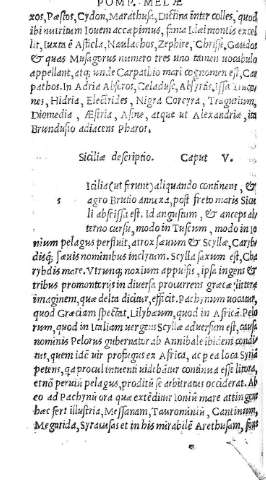 POMP. MELAE
xos, Phæstos, Cydon, Marathusæ, Dictina inter colles, quod
ibi nutritum Iouem accæpimus, fama Idaimontis excel
lit, iuxta è Asticla, Naulachos, Zephire, Chrissæ, Gaudos
& quas Musagorus numero tres uno tamen uocabulo
appellant, atq; unde Carpathio mari cognomen est, Car
pathos. In Adria Absorus, Celaduse, Absyrtis, Issa
Hidria, Electrides, Nigra Corcyra, Tragurium,
Diomedia, Æstria, Asine, atque ut Alexandriæ, in
Brundusio adiacens Pharos.
Siciliæ descriptio. Caput V.
s
Icilia (ut ferunt) aliquando continens, &
agro Brutio annexa, post freto maris Sicu
li abscissa est. Id angustum, & anceps alt
terno cursu, modo in Tuscum, modo in Io
nium pelagus perfluit, atrox sæuum & Scyllæ, Caryb
disq; sæuis nominibus inclytum. Scylla saxum est, Cha
rybdis mare. Vtrunq; noxium appulsis, ipsa ingens &
tribus promontorijs in diuersa procurrens græcæ literæ
imaginem, quæ delta dicitur, efficit. Pachynum uocatur,
quod Græciam spectat, Lilybæum, quod in Africa. Pelo
rum, quod in Italiam uergens Scyllæ aduersum est, causa
nominis Pelorus gubernator ab Annibale ibidem condi
tus, quem idẽ uir profugus ex Africa, ac per ea loca Syriã
petens, qa procul intuenti uidebãtur continua esse litora,
et nõ peruiũ pelagus, proditũ se arbitratus occiderat. Ab
eo ad Pachynũ ora quæ extẽditur Ioniũ mare attingens
hæc fert illustria, Messanam, Tauromininũ, Cantinam,
Megarida, Syracusas et in his mirabilẽ Arethusam, fons